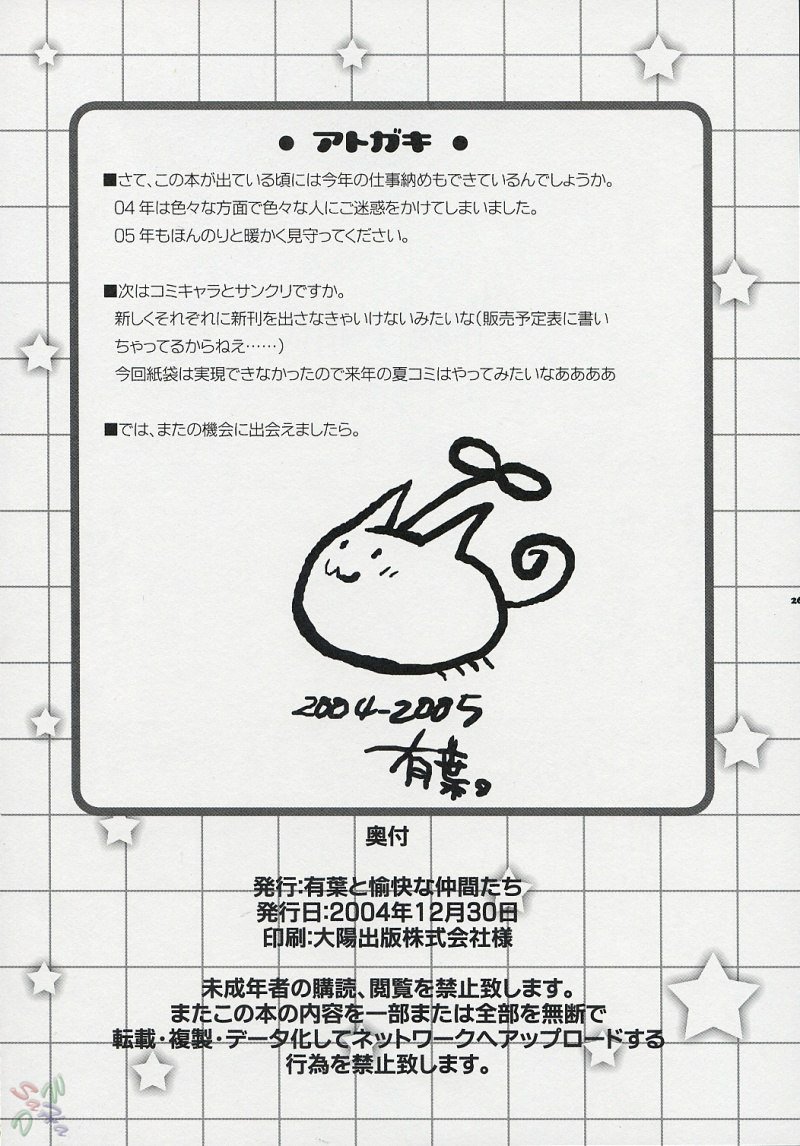 ● アトガキ ●
■さて、この本が出ている頃には今年の仕事納めもできているんでしょうか。
04年は色々な方面で色々な人にご迷惑をかけてしまいました。
05年もほんのりと暖かく見守ってください。
■次はコミキャラとサンクリですか。
新しくそれぞれに新刊を出さなきゃいけないみたいな(販売予定表に書い
ちゃってるからねえ……)
今回紙袋は実現できなかったので来年の夏コミはやってみたいなああああ
■では、またの機会に出会えましたら。
26
2004-2005
有葉
奥付
発行:有葉と愉快な仲間たち
発行日:2004年12月30日
印刷:大陽出版株式会社様
未成年者の購読、閲覧を禁止致します。
またこの本の内容を一部または全部を無断で
転載・複製・データ化してネットワークへアップロードする
行為を禁止致します。